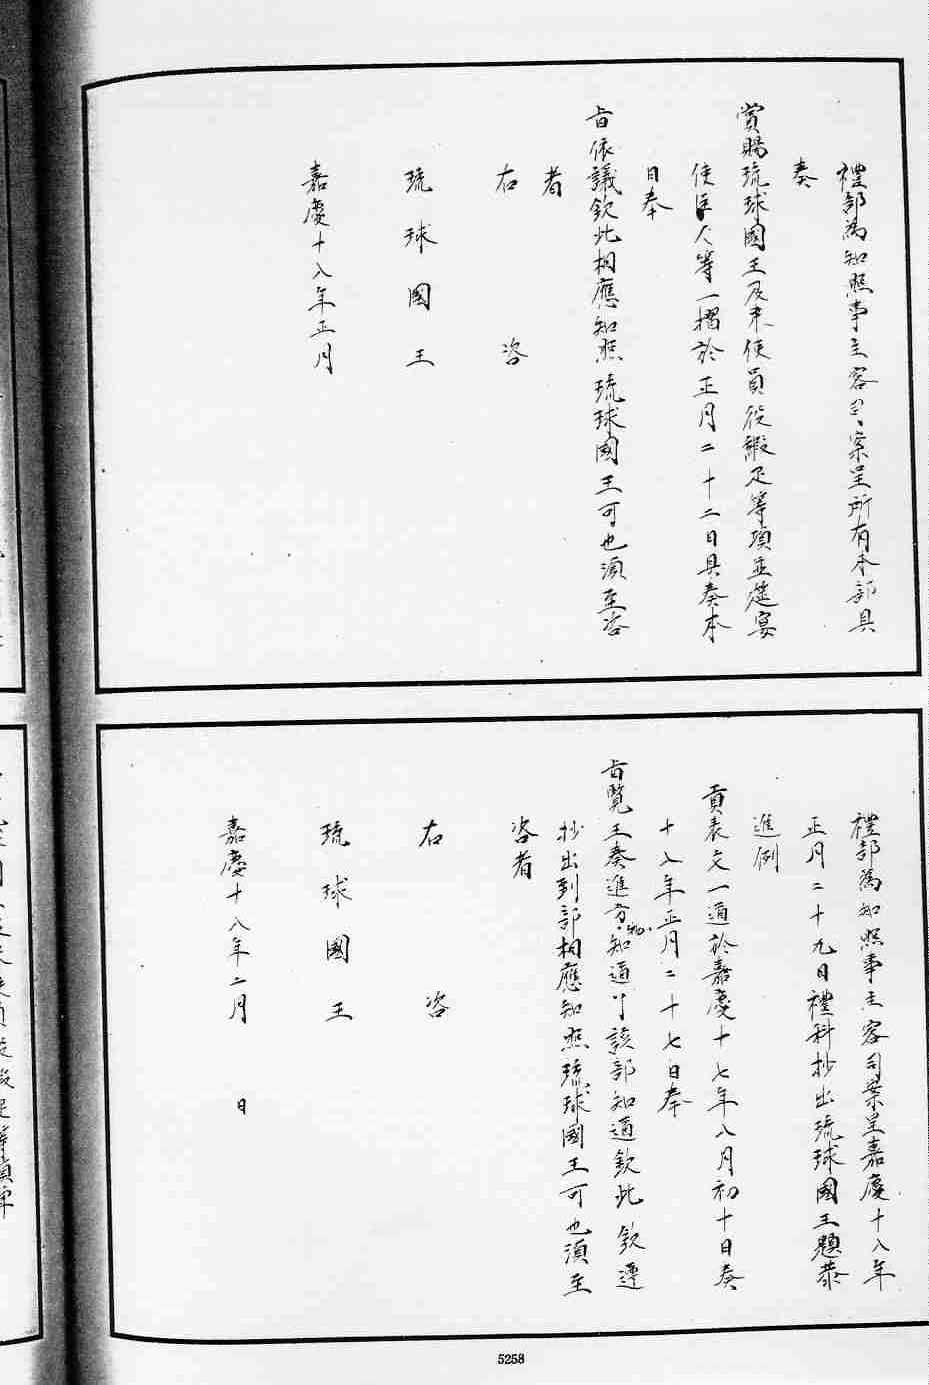 禮部為知照事主客司案呈所有本部具
奏
賞賜琉球國王及來使員役緞疋等項並筵宴
使臣人等一摺於正月二十二日具奏本
日奉
旨依議欽此相應知照琉球國王可也須至咨
者
右咨
琉球國王
嘉慶十八年正月
禮部為知照事主客司案呈嘉慶十八年
正月二十九日禮科抄出琉球國王題恭
進例
貢表文一通於嘉慶十七年八月初十日奏
十八年正月二十七日奉
旨覽王奏進方物知道了該部知道欽此欽遵
抄出到部相應知照琉球國王可也須至
咨者
右咨
琉球國王
嘉慶十八年二月 日
5258